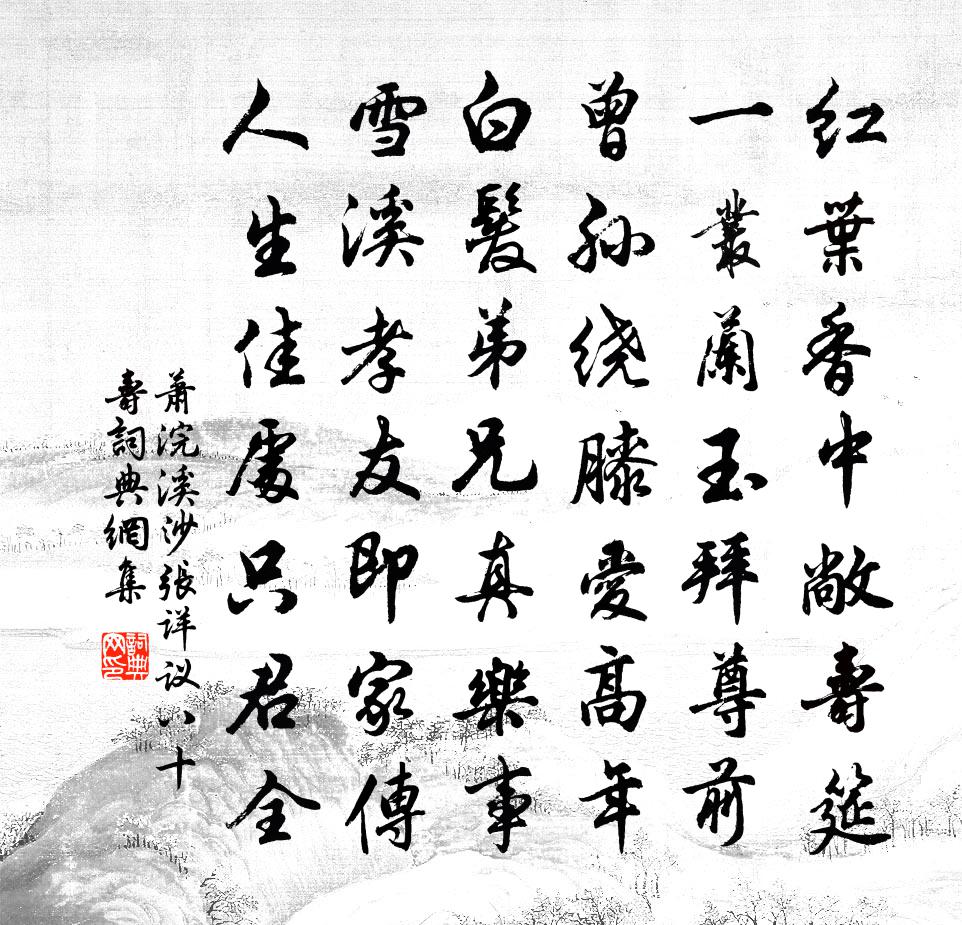 红葉香中敞壽筵
一叢蘭玉拜尊前
曾孫绕膝愛高年
白髮弟兄真樂事
雪溪孝友即家傳
人生佳處只君全
蕭浣溪沙張詳议八十
壽詞典網集
詞典
网印